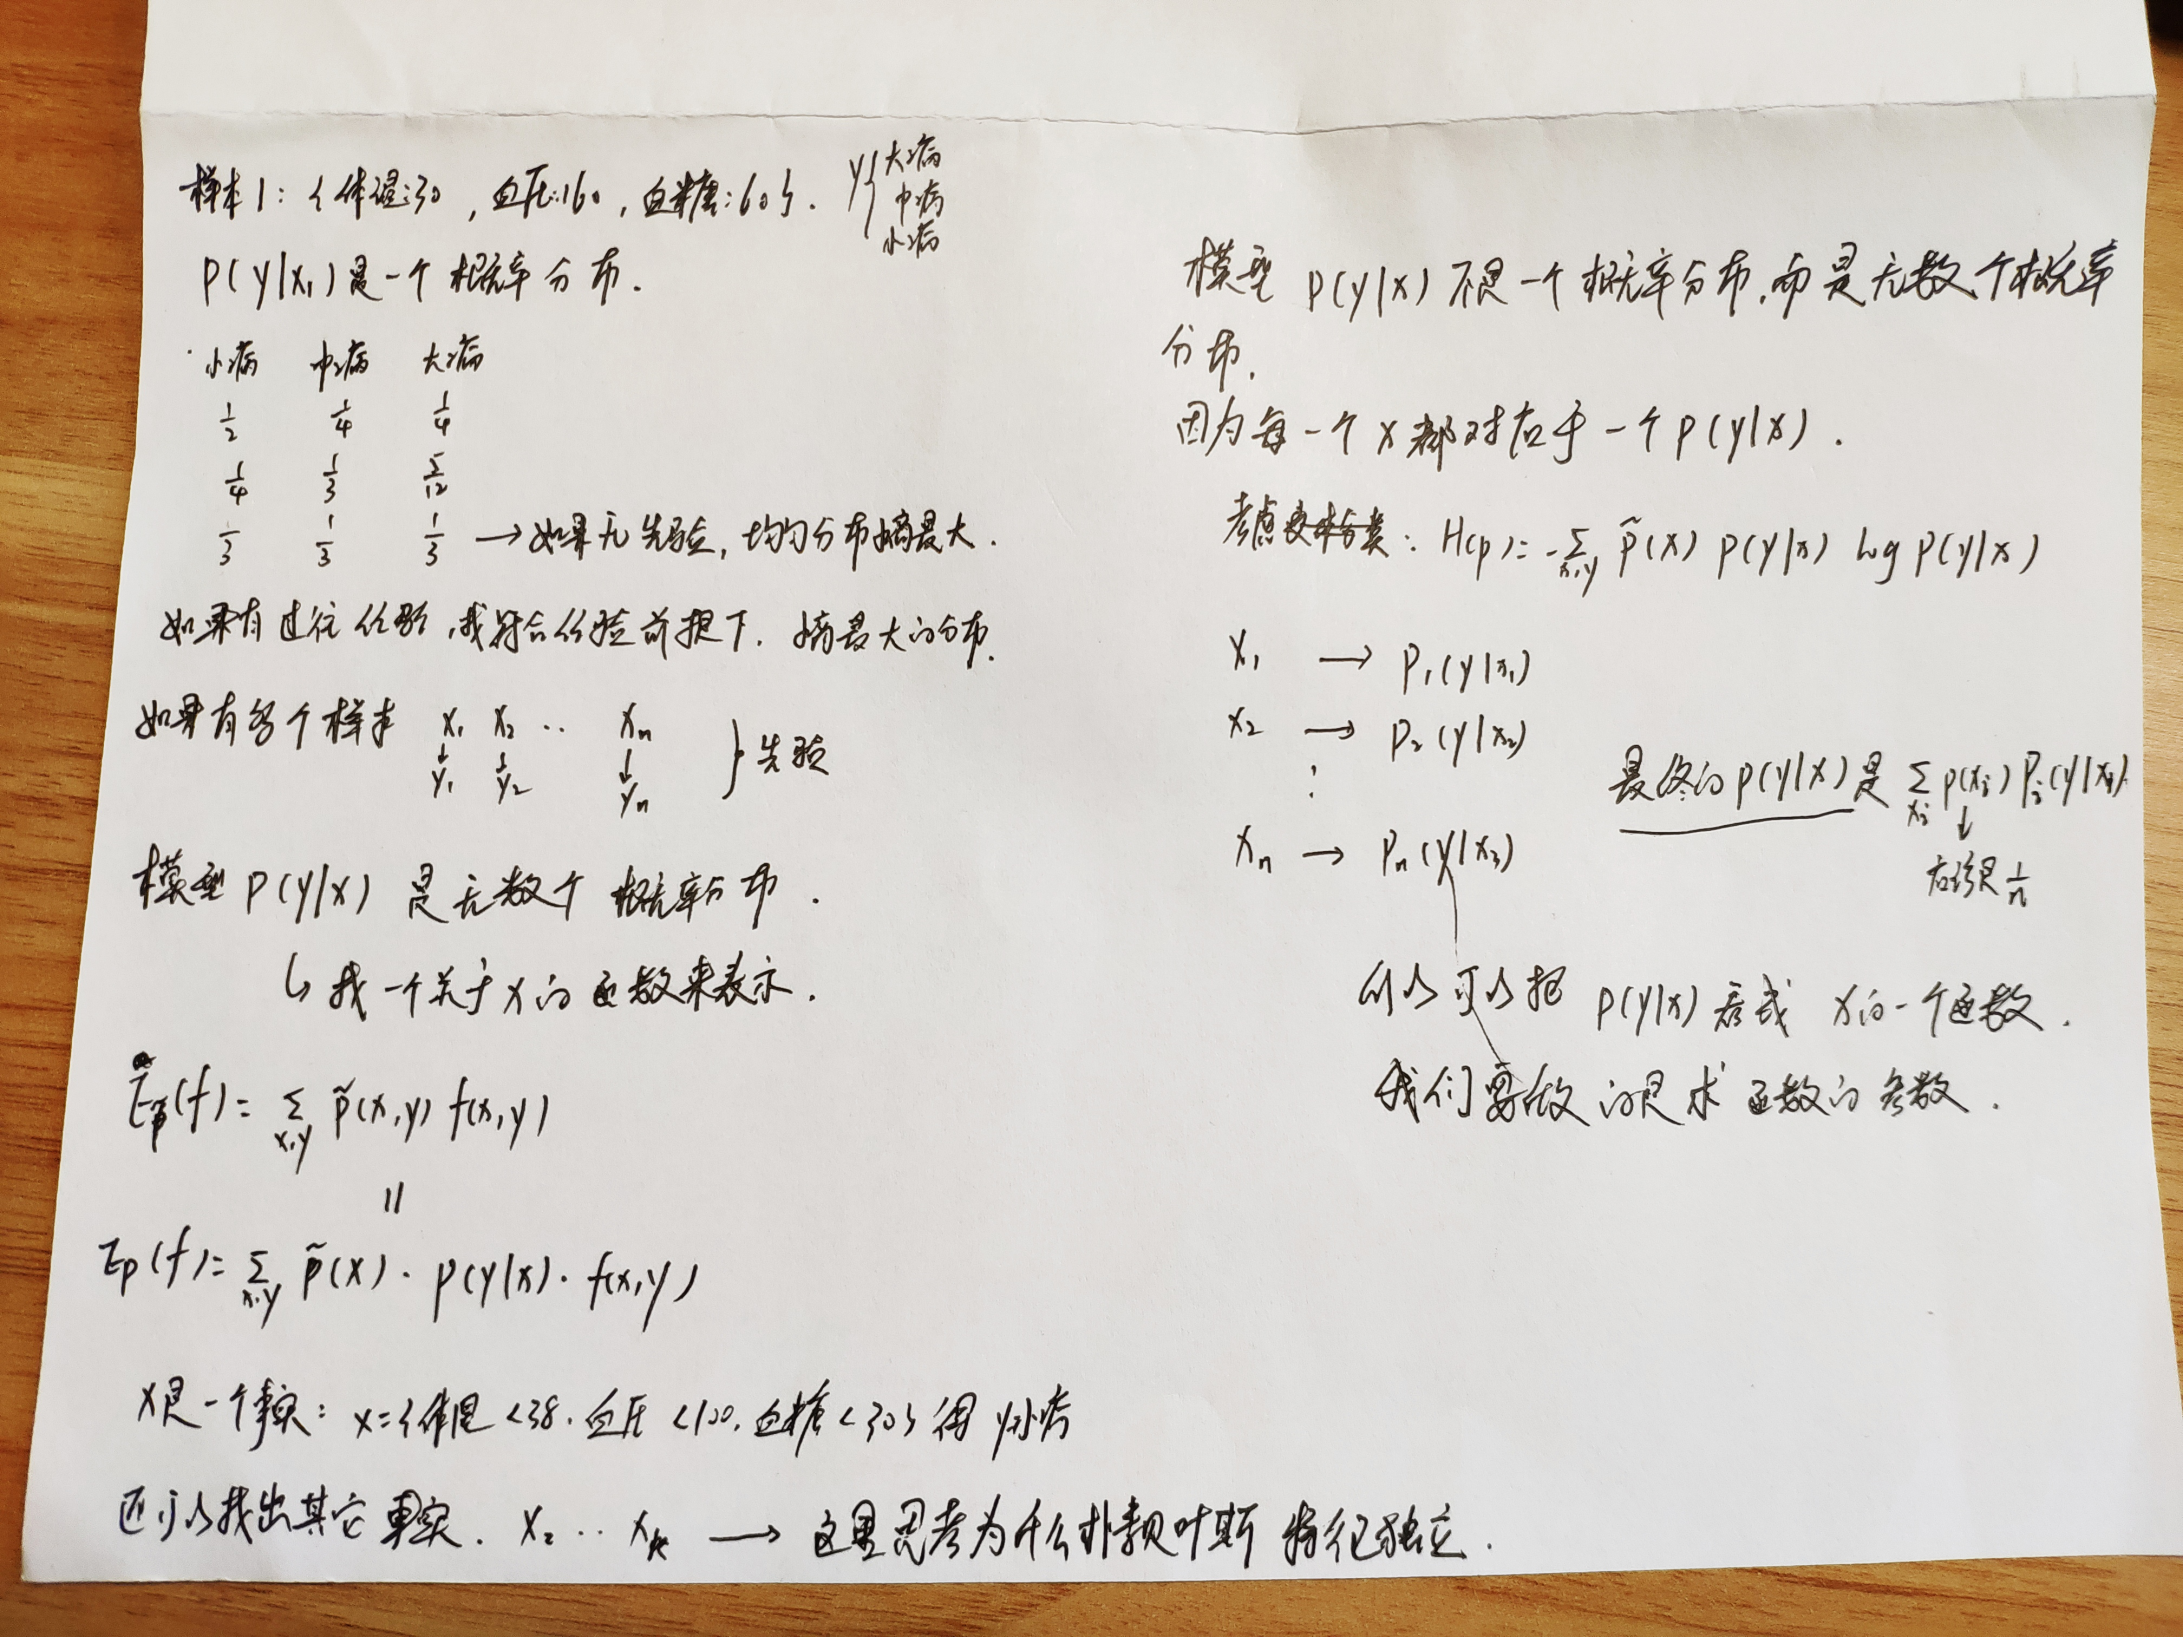 样本1: {体温:30, 血压:160, 血糖:60}. y{大病
中病
小病
P(y|x₁)是一个概率分布.
小病 中病 大病
1/2 1/4 1/4
1/4 1/3 5/12
1/3 1/3 1/3 → 如果无先验, 均匀分布熵最大.
如果有过往经验, 找符合经验前提下. 熵最大的分布.
如果有多个样本 x₁ x₂ ·· xₙ } 先验
↓ ↓ ↓
y₁ y₂ yₙ
模型 P(y|x) 是无数个 概率分布.
↳ 找一个关于x的函数来表示.
E_p̃(f)= Σ_{x,y} p̃(x,y) f(x,y)
||
E_p(f)= Σ_{x,y} p̃(x)·p(y|x)·f(x,y)
x是一个事实: x={体温<38. 血压<100. 血糖<30} 得 y小病
还可以找出其它事实. x₂ ·· xₖ → 这里思考为什么朴素贝叶斯 特征独立.
模型 P(y|x) 不是一个概率分布, 而是无数个概率
分布.
因为每一个x都对应于一个P(y|x).
考虑: H(p)= -Σ_{x,y} p̃(x) p(y|x) log p(y|x)
x₁ → P₁(y|x₁)
x₂ → P₂(y|x₂)
⋮
最终的p(y|x)是 Σ_{xᵢ} p(xᵢ) Pᵢ(y|xᵢ).
↓
应该是 1/n
xₙ → Pₙ(y|x₃)
所以可以把 P(y|x) 看成 x的一个函数.
我们要做的是求函数的参数.